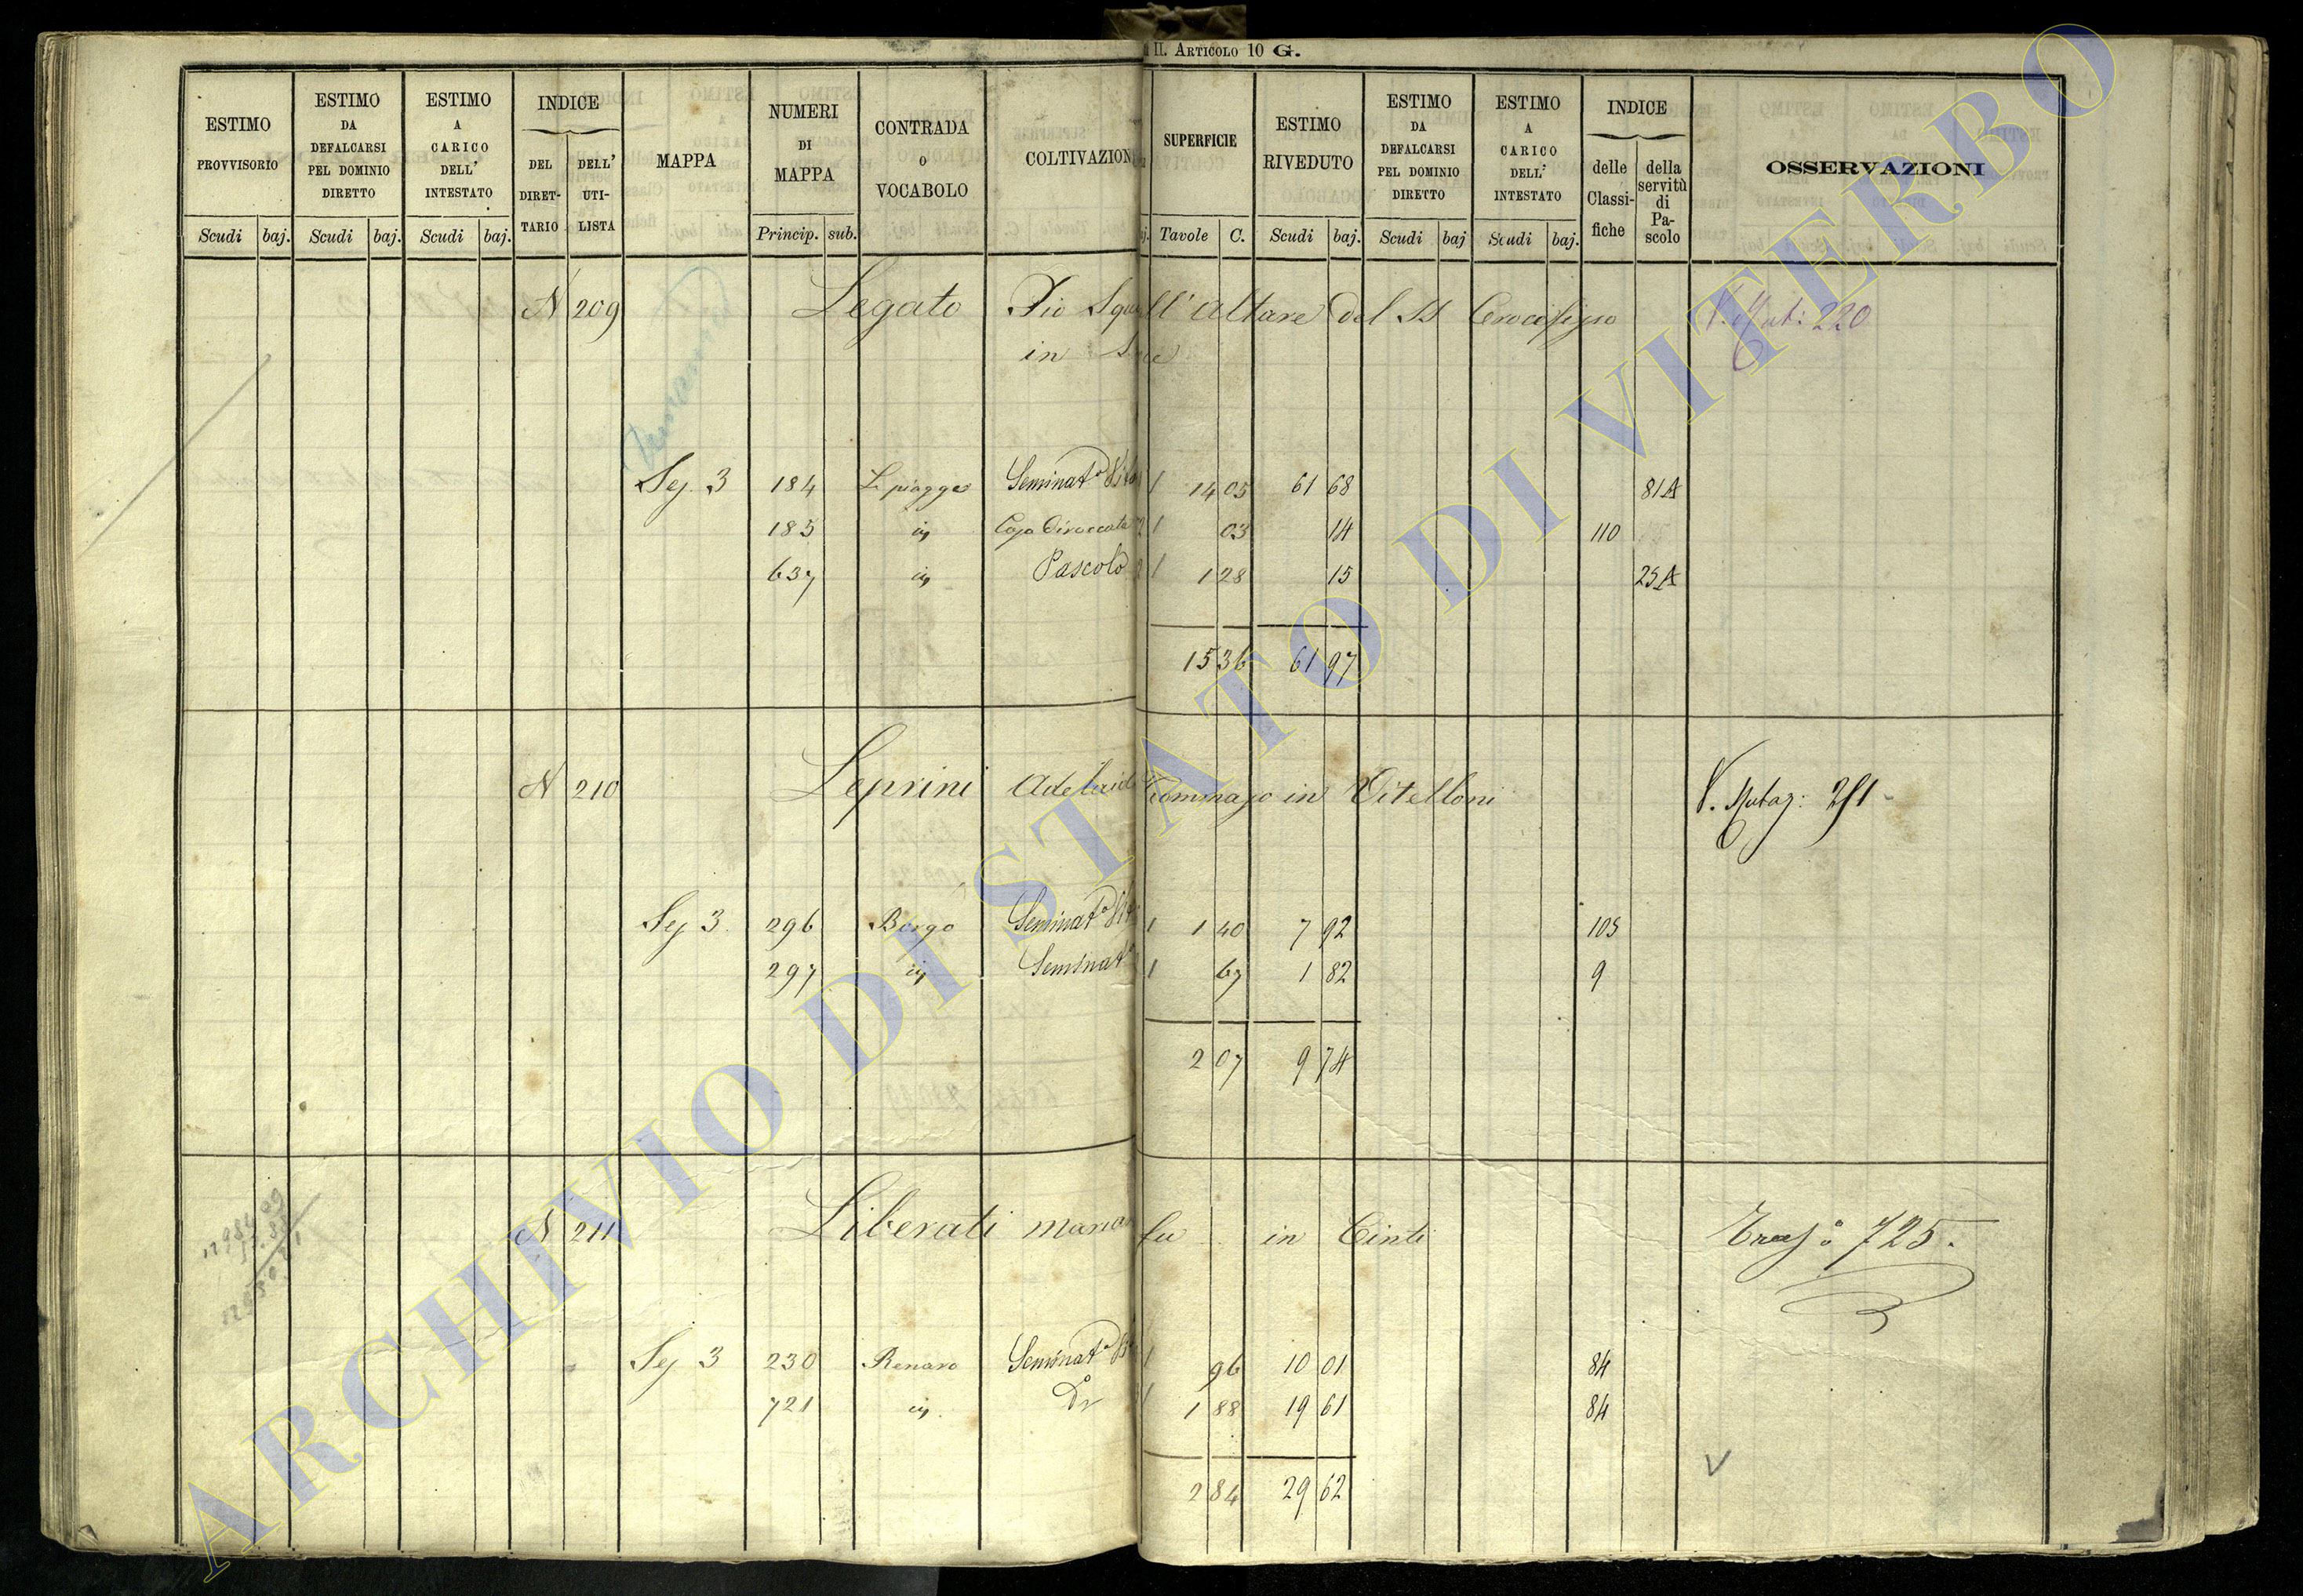 II. ARTICOLO 10 G.
ESTIMO PROVVISORIO
ESTIMO DA DEFALCARSI PEL DOMINIO DIRETTO
ESTIMO A CARICO DELL' INTESTATO
INDICE
DEL DIRETTARIO
DELL' UTILISTA
MAPPA
NUMERI DI MAPPA
CONTRADA O VOCABOLO
COLTIVAZION
SUPERFICIE
ESTIMO RIVEDUTO
ESTIMO DA DEFALCARSI PEL DOMINIO DIRETTO
ESTIMO A CARICO DELL' INTESTATO
INDICE
delle Classifiche
della servitù di Pascolo
OSSERVAZIONI
Scudi baj. Scudi baj. Scudi baj. Princip. sub. Tavole C. Scudi baj. Scudi baj Scudi baj.
N 209 Legato Pio ll' Altare del SS Crocifisso 220
in
Sez. 3 184 Seminat° 1 14 05 61 68 81 A
185 Casa Diroccata 1 03 14 110
637 Pascolo 1 1 28 15 25 A
15 36 61 97
N 210 Leprini Adelaid Tommaso in Vitelloni V. Mutaz: 291
Sez 3 296 Borgo Seminat° 1 1 40 7 92 105
297 Seminat 1 67 1 82 9
2 07 9 74
N 211 Liberati Marian fu in Cinti 725.
Sez 3 230 Renaro Seminat° 1 96 10 01 84
721 D° 1 1 88 19 61 84
2 84 29 62
V
ARCHIVIO DI STATO DI VITERBO